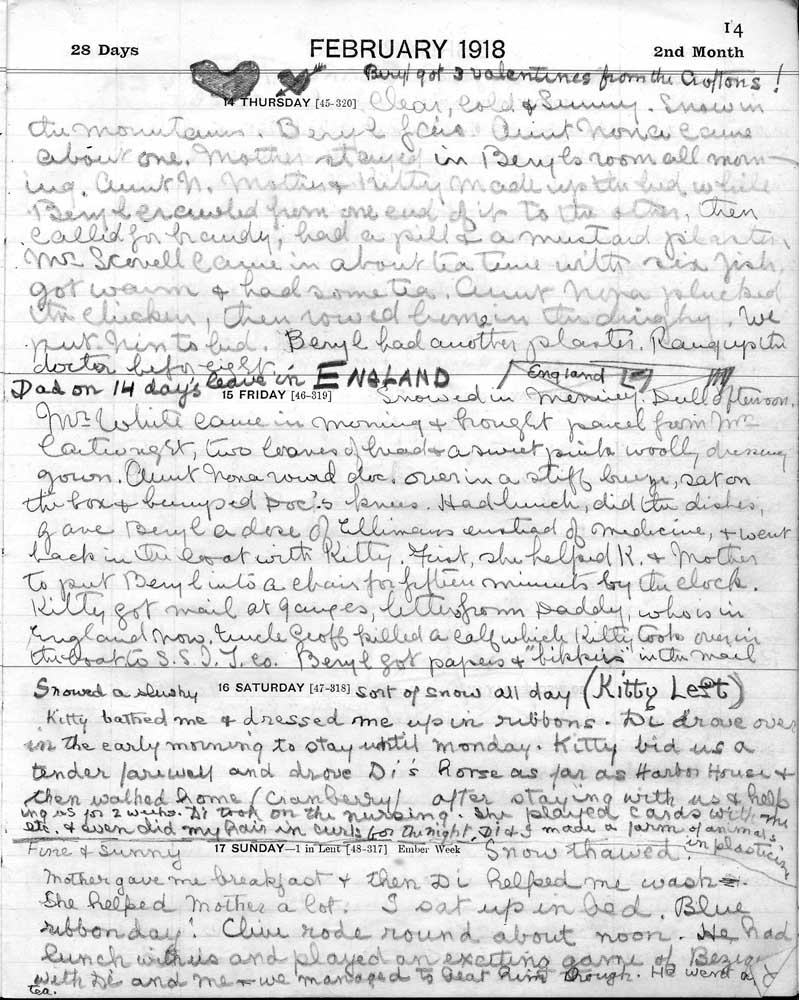 14
28 Days FEBRUARY 1918 2nd Month
Beryl got 3 valentines from the Croftons!
14 THURSDAY [45-320] Clear, Cold & Sunny. Snow in
the mountains. Beryl Aunt Nona came
about one. Mother stayed in Beryls room all morn-
ing. Aunt N. Mother & Kitty made up the bed while
Beryl crawled from one end of it to the other, then
called for brandy, had a pill & a mustard plaster
Mr Scovell came in about tea time with six fish,
got warm & had some tea. Aunt Nona plucked
the chicken, then rowed home in the dinghy. We
put him to bed. Beryl had another plaster. Rang up the
doctor before eight.
Dad on 14 day's leave in ENGLAND England
15 FRIDAY [46-319] Snowed in morning. Dull afternoon.
Mr. White came in morning & brought parcel from Mrs
Cartwright, two loaves of bread & a sweet pink woolly dressing
gown. Aunt Nona rowed doc. over in a stiff breeze, sat on
the box & bumped Doc's knees. Had lunch, did the dishes,
gave Beryl a dose of Ellimans instead of medicine, & went
back in the boat with Kitty. First, she helped K. & Mother
to put Beryl into a chair for fifteen minutes by the clock.
Kitty got mail at Ganges, letters from Daddy, who is in
England now. Uncle Geoff killed a calf which Kitty took over in
the boat to S.S.I.T. Co. Beryl got papers & "bikkies" in the mail
Snowed a slushy 16 SATURDAY [47-318] sort of snow all day (Kitty Left)
Kitty bathed me & dressed me up in ribbons. Di drove over
in the early morning to stay until Monday. Kitty bid us a
tender farewell and drove Di's horse as far as Harbor House &
then walked home (Cranberry) after staying with us & help
ing us for 2 weeks. Di took on the nursing. She played cards with me
etc. & even did my hair in curls for the night. Di & I made a farm of animals
in plasticine
Fine & Sunny 17 SUNDAY—1 in Lent [48-317] Ember Week Snow thawed.
Mother gave me breakfast & then Di helped me wash.
She helped Mother a lot. I sat up in bed. Blue
ribbon day! Clive rode round about noon. He had
lunch with us and played an exciting game of Bezique
with Di and me & we managed to beat him though. He went
tea.